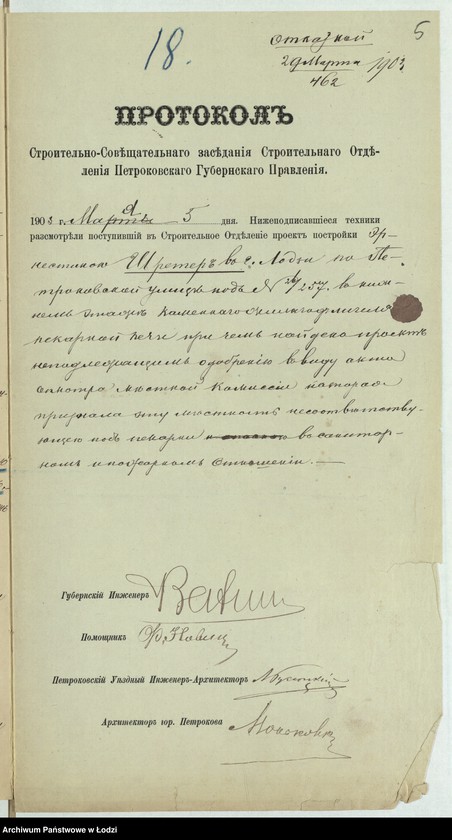 5
18.
Отказной
29 Марта 1903
462
ПРОТОКОЛЪ
Строительно-Совѣщательнаго засѣданія Строительнаго Отдѣ-
ленія Петроковскаго Губернскаго Правленія.
1903 г. Марта 5 дня. Нижеподписавшіеся техники
разсмотрѣли поступившій въ Строительное Отдѣленіе проектъ постройки Эр-
нестиною Шретеръ въ г. Лодзи по Пе-
троковской улицѣ подъ № 257. въ ниж-
немъ этажѣ каменнаго флигеля
пекарной печи при чемъ найдено проектъ
неподлежащимъ одобренію въ виду акта
осмотра мѣстной Комиссіи которая
признала эту мѣстность несоотвѣтству-
ющею подъ пекарни въ санитар-
номъ и пожарномъ отношеніи.
Губернскій Инженеръ
Помощникъ
Петроковскій Уѣздный Инженеръ-Архитекторъ
Архитекторъ гор. Петрокова
Archiwum Państwowe w Łodzi